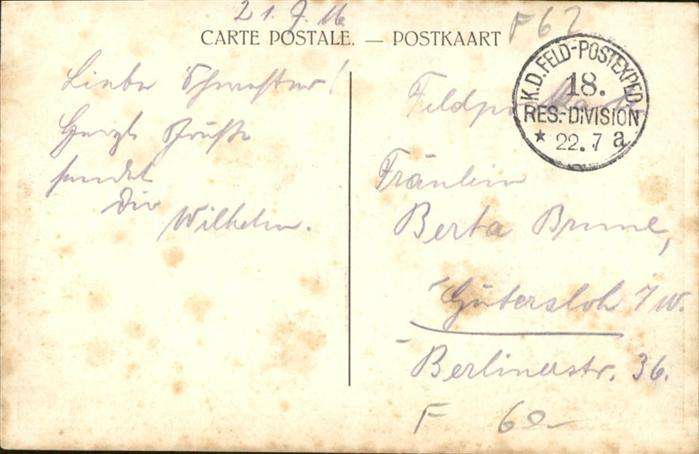 21.7.16
F62
CARTE POSTALE. — POSTKAART
Liebe Schwester!
Herzl. Grüße
sendet
Dir
Wilhelm.
K.D. FELD-POSTEXPED.
18.
RES.-DIVISION
* 22.7 a
Fräulein
Berta Brune,
Gütersloh i/W.
Berlinerstr. 36.
F 60-